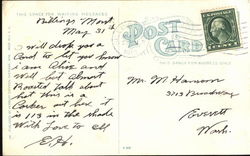 THIS SPACE FOR WRITING MESSAGES
Billings Mont.
May 31st
I will drop you a
Card to let you know
I am alive and
Well but almost
Roasted talk about
hot this is a
Corker out here it
is 113 in the shade
With Love to all
POST
CARD
THIS SPACE FOR ADDRESS ONLY
Mr. M. Hanson
3713 Broadway
Everett
Wash.